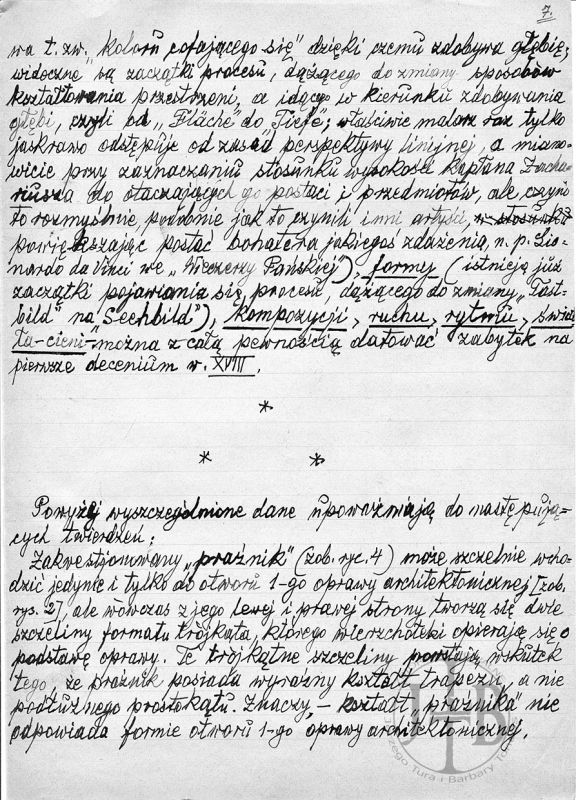 7.
wa t. zw. „koloru cofającego się" dzięki czemu zdobywa głębię;
widoczne są zaczątki procesu, dążącego do zmiany sposobów
kształtowania przestrzeni, a idącego w kierunku zdobywania
głębi, czyli od „Fläche" do „Tiefe"; właściwie malarz raz tylko
jaskrawo odstępuje od zasad perspektywy linijnej, a miano=
wicie przy zaznaczaniu stosunku wysokości kapłana Zacha=
riusza do otaczających go postaci i przedmiotów, ale czyni
to rozmyślnie podobnie jak to czynili inni artyści, w stosunku
powiększając postać bohatera jakiegoś zdażenia, n. p. Lio=
nardo da Vinci we „Wieczerzy Pańskiej"), formy (istnieją już
zaczątki pojawiania się procesu, dążącego do zmiany „Tast=
bild" na „Seehbild"), kompozycji, ruchu, rytmu, świa=
tła-cieni – można z całą pewnością datować zabytek na
pierwsze decenium w. XVIII.
*
* *
Powyżej wyszczególnione dane upoważniają do następują=
cych twierdzeń:
Zakwestjonowany „praźnik" (zob. ryc. 4) może szczelnie wcho=
dzić jedynie i tylko do otworu 1-go oprawy architektonicznej [zob.
rys. 2], ale wówczas z jego lewej i prawej strony tworzą się dwie
szczeliny formatu trójkąta, którego wierzchołki opierają się o
podstawę oprawy. Te trójkątne szczeliny powstają wskutek
tego, że praźnik posiada wyraźny kształt trapezu, a nie
podłużnego prostokątu. Znaczy, – kształt „praźnika" nie
odpowiada formie otworu 1-go oprawy architektonicznej.
JTB
Jerzego Tura i Barbary Tur